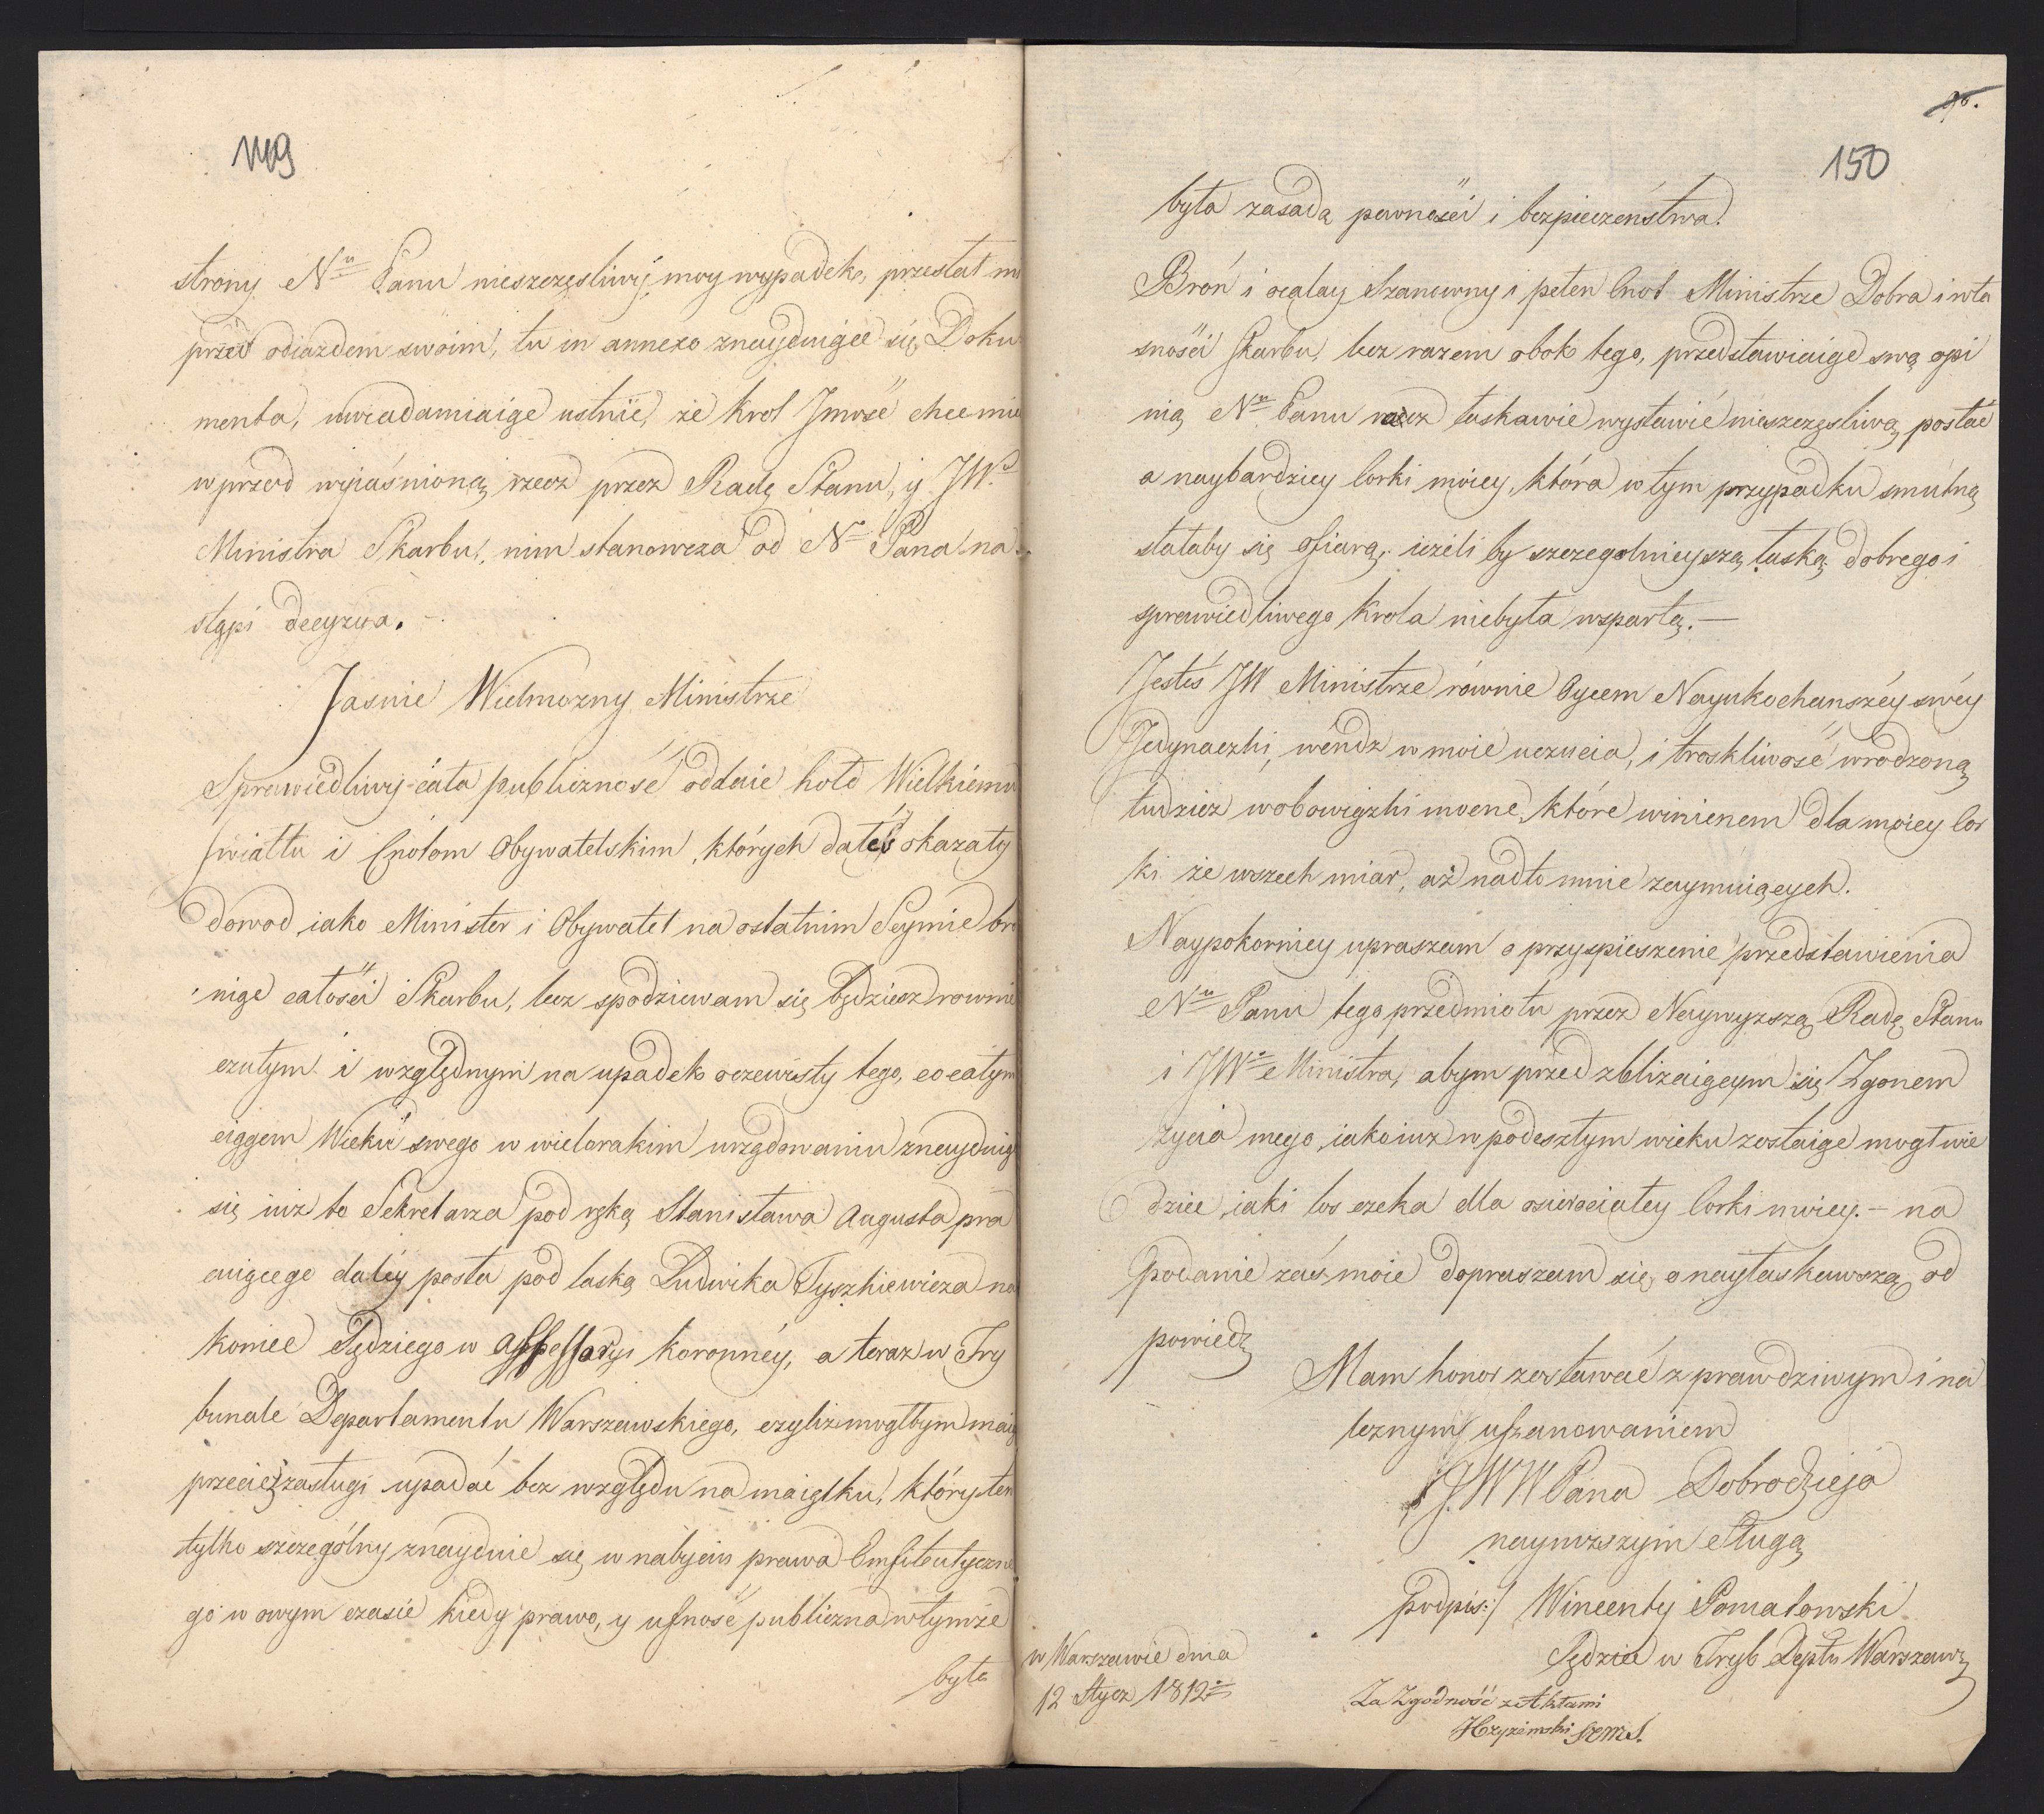 149
strony Nu Panu nieszczęśliwy moy wypadek, przesłał m
przed odiazdem swoim, tu in annexo znayduiące się Doku
menta, uwiadamiaiąc ustnie, że Krol Jmość chce mie
wprzod wyiaśnioną rzecz przez Radę Stanu, y JWo
Ministra Skarbu, nim stanowcza od No Pana na
stąpi decyzya. –
Jasnie Wielmozny Ministrze
Sprawiedliwy cała publiczność oddaie hołd Wielkiemu
swiatłu i Cnotom Obywatelskim, których dałeś okazały
dowod iako Minister i Obywatel na ostatnim Seymie bro
niąc całości Skarbu, lecz spodziewam się będziesz rownie
czułym i względnym na upadek oczewisty tego, co całym
ciągem Wieku swego w wielorakim urzędowaniu znayduią
się iuż to Sekretarza pod ręką Stanisława Augusta pra
cuiącego daléy posła pod laską Ludwika Tyszkiewicza na
koniec Sędziego w Assessoryi Koronnéy, a teraz w Try
bunale Departamentu Warszawskiego, czyliż mogłbym maią
przecież zasługi upadać bez względu na maiątku, który ten
tylko szczególny znayduie się w nabyciu prawa Emfiteutyczne
go w owym czasie kiedy prawo, y ufność publiczna w tymże
była
150
była zasadą pewności i bezpieczeństwa.
Broń i ocalay Szanowny i pełen Cnot Ministrze Dobra i wła
sności Skarbu, lecz razem obok tego, przedstawiaiąc swą opi
nią Nu Panu racz łaskawie wystawić nieszczęsliwą postać
a naybardziey Corki moiey, która w tym przypadku smutną
stałaby się ofiarą, ieżeli by szczegolnieyszą łaską dobrego i
sprawiedliwego Krola niebyła wspartą. –
Jesteś JW Ministrze równie Oycem Nayukochanszéy swéy
Jedynaczki, wéndz w moie uczucia, i troskliwość wrodzoną
tudziez w obowiązki mocne, które winienem dla moiey Cor
ki ze wszech miar, aż nadto mnie zaymuiących.
Naypokorniey upraszam o przyspieszenie przedstawienia
Nu Panu tego przedmiotu przez Naywyzszą Radę Stanu
i JWo Ministra, abym przed zbliżaiącym się Zgonem
życia mego, iako iuz w podeszłym wieku zostaiąc mogł wie
dziec, iaki los czeka dla osierociałey Corki moiey. – na
Podanie zaś moie dopraszam się o nayłaskawszą od
powiedz
Mam honor zostawać z prawdziwym i na
leznym uszanowaniem
JWW Pana Dobrodzieja
naynizszym Sługą
podpis:/ Wincenty Pomatowski
Sędzia w Tryb Deptu Warszaw:
w Warszawie dnia
12 Stycz 1812
Za Zgodność z Aktami